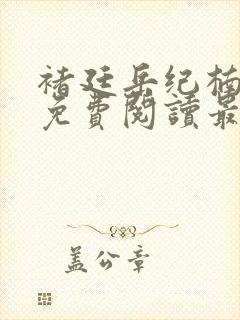 褚廷岳纪楠
免費閱讀最
盖公章